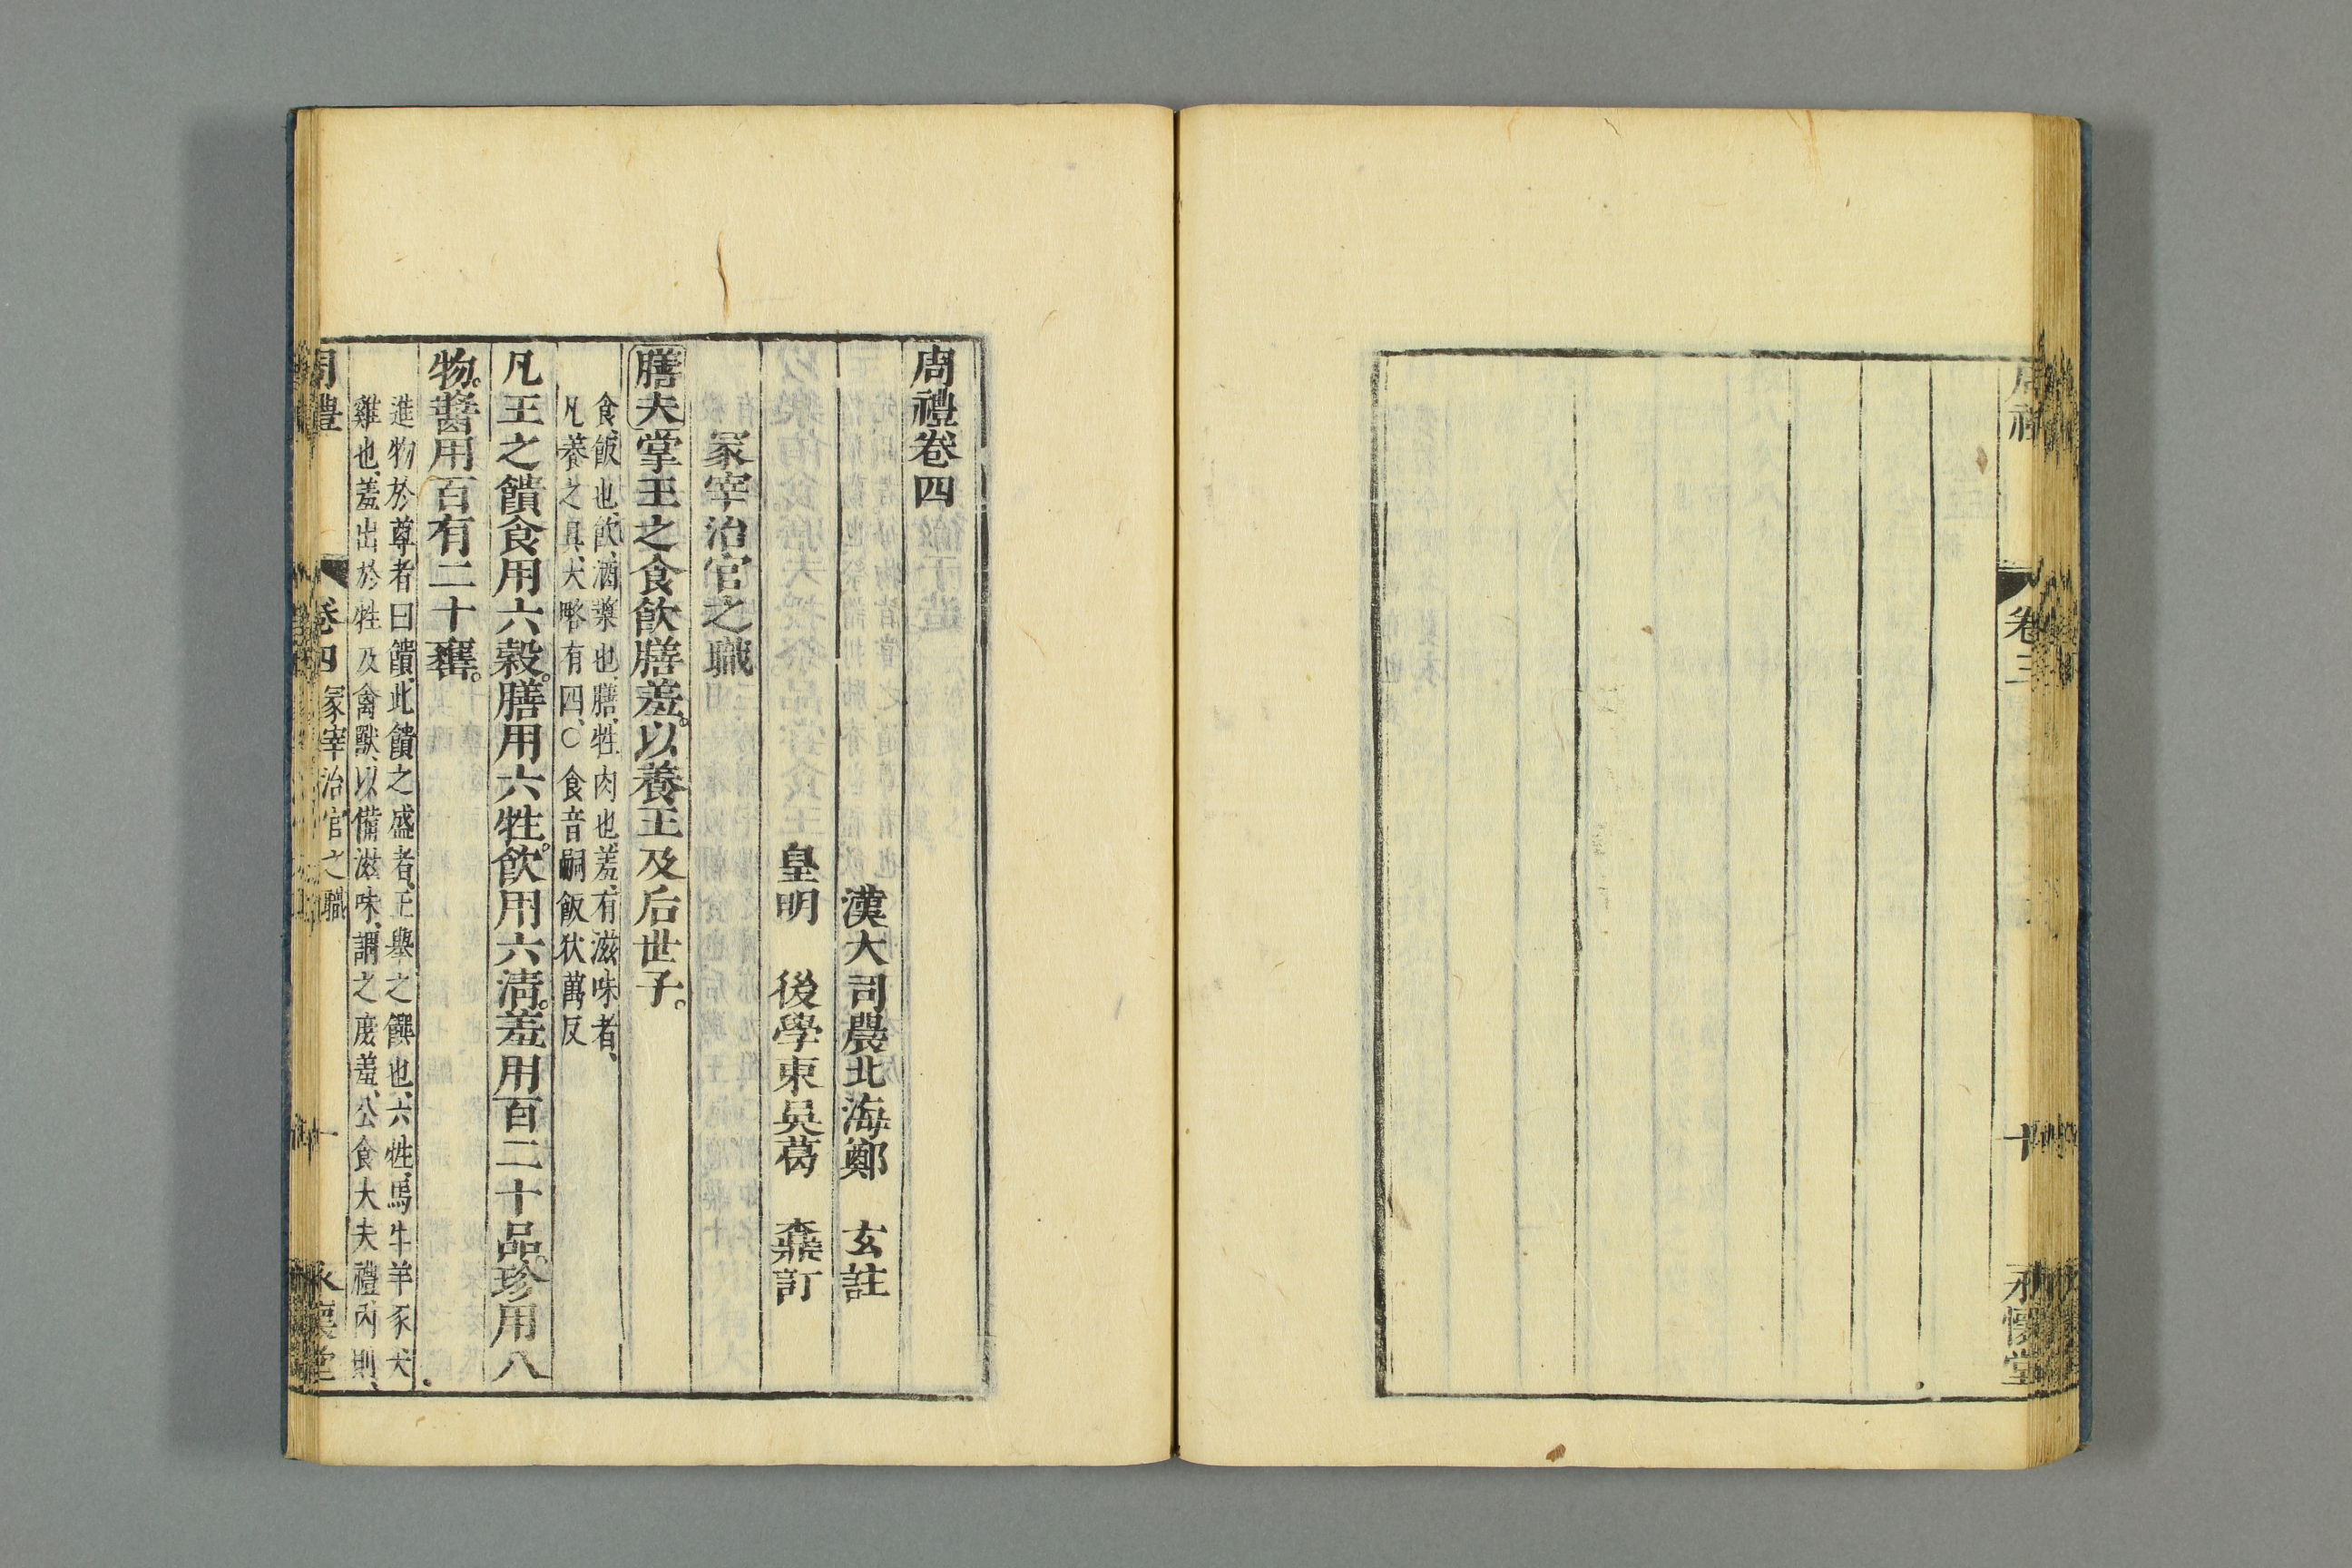 卷三
十
永懷堂
周禮卷四
漢大司農北海鄭　玄註
皇明　後學東吳葛　鼒訂
冢宰治官之職
膳夫掌王之食飲膳羞。以養王及后世子。
食、飯也、飲、酒漿也、膳、牲肉也、羞、有滋味者、
凡養之具、大略有四、○食音嗣飯狄萬反
凡王之饋食用六穀。膳用六牲。飲用六清。羞用百二十品。珍用八
物。醬用百有二十罋。
進物於尊者曰饋、此饋之盛者、王舉之饌也、六牲、馬牛羊豕犬
雞也、羞出於牲及禽獸、以備滋味、謂之庶羞、公食大夫禮、內則、
周禮
卷四
冢宰治官之職
一
永懷堂